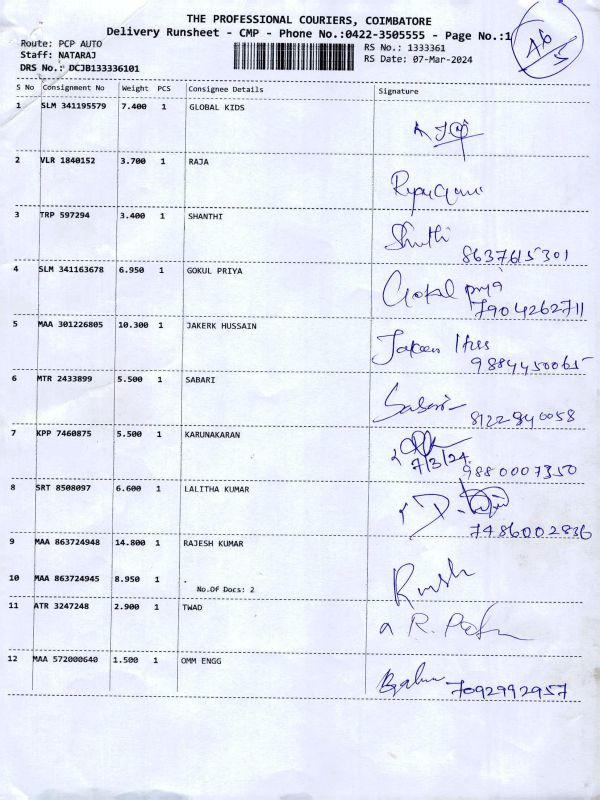 THE PROFESSIONAL COURIERS, COIMBATORE
Delivery Runsheet - CMP - Phone No.:0422-3505555 - Page No.:1
Route: PCP AUTO
RS No.: 1333361
Staff: NATARAJ
RS Date: 07-Mar-2024
DRS No.: DCJB133336101
S No Consignment No Weight PCS Consignee Details Signature
1 SLM 341195579 7.400 1 GLOBAL KIDS
2 VLR 1840152 3.700 1 RAJA
3 TRP 597294 3.400 1 SHANTHI
8637615301
4 SLM 341163678 6.950 1 GOKUL PRIYA
Gokal priya
7904262711
5 MAA 301226805 10.300 1 JAKERK HUSSAIN
9884450065
6 MTR 2433899 5.500 1 SABARI
Sabari
8122840058
7 KPP 7460875 5.500 1 KARUNAKARAN
7/3/24
9880007350
8 SRT 8508097 6.600 1 LALITHA KUMAR
7486002836
9 MAA 863724948 14.800 1 RAJESH KUMAR
10 MAA 863724945 8.950 1 .
No.Of Docs: 2
11 ATR 3247248 2.900 1 TWAD
12 MAA 572000640 1.500 1 OMM ENGG
7092992957